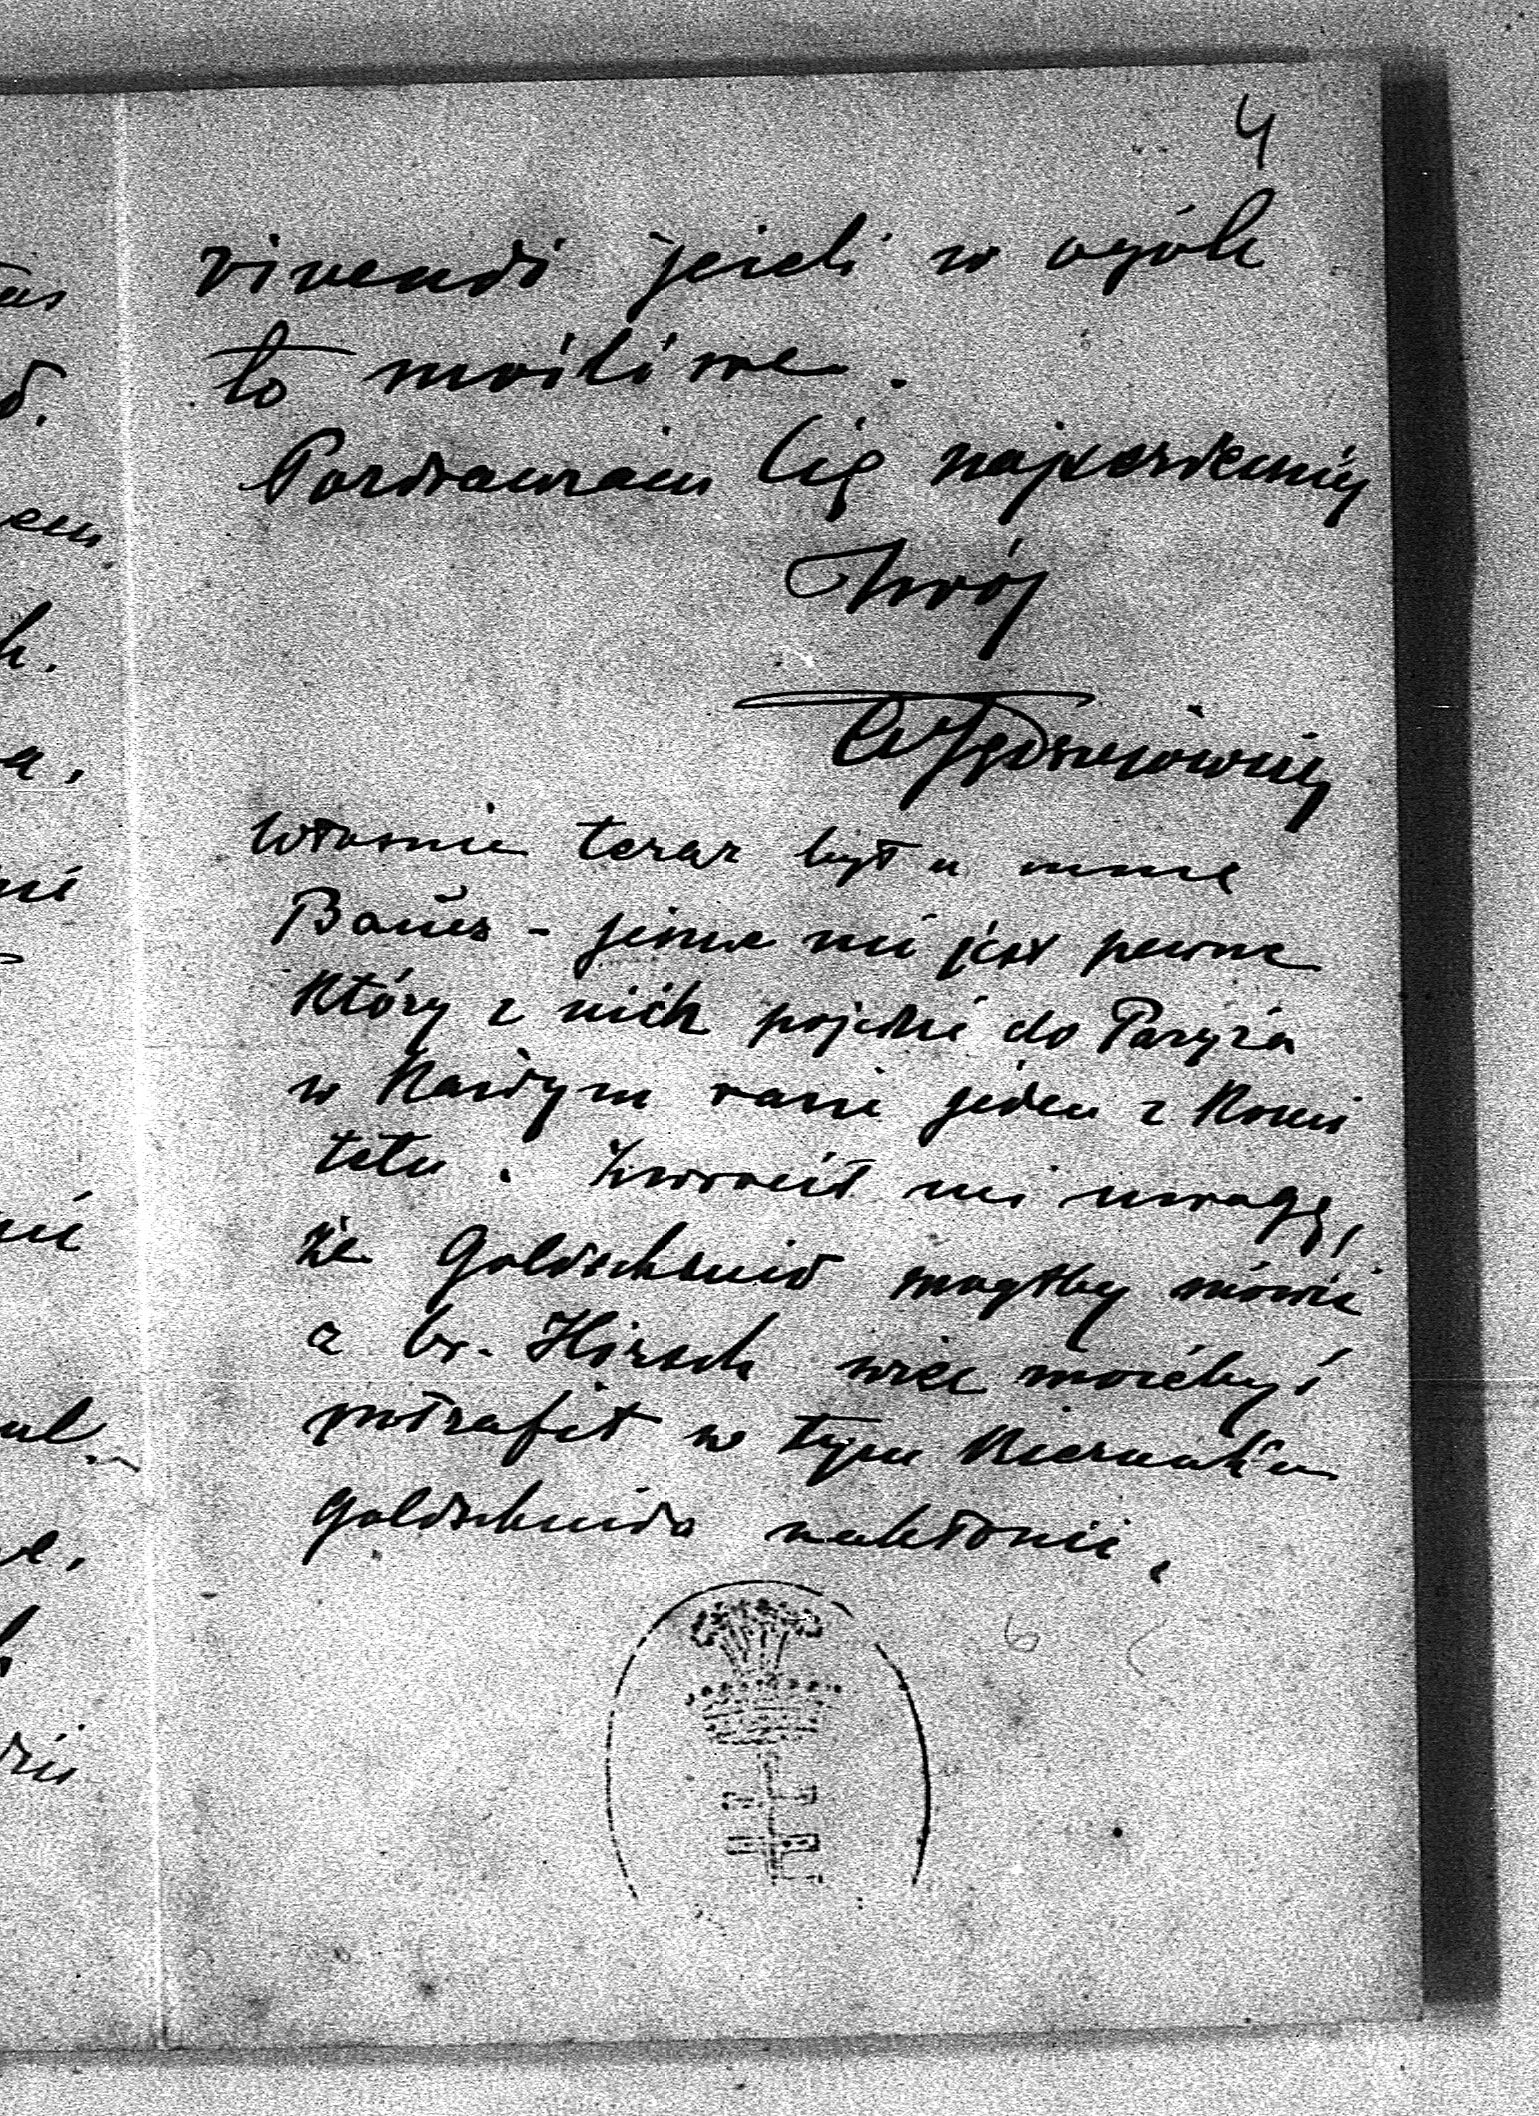 4
vivendi jeżeli w ogóle
to możliwe.
Pozdrawiam Cię najserdeczniej
Twój
Właśnie teraz był u mnie
Bauer - jeszcze nie jest pewne
który z nich pojedzie do Paryża
w każdym razie jeden z Komi
tetu. Zwrócił mi uwagę,
że Goldschmid mógłby mówić
z br. Hirsch więc możebyś
potrafił w tym kierunku
Goldschmida nakłonić.
6